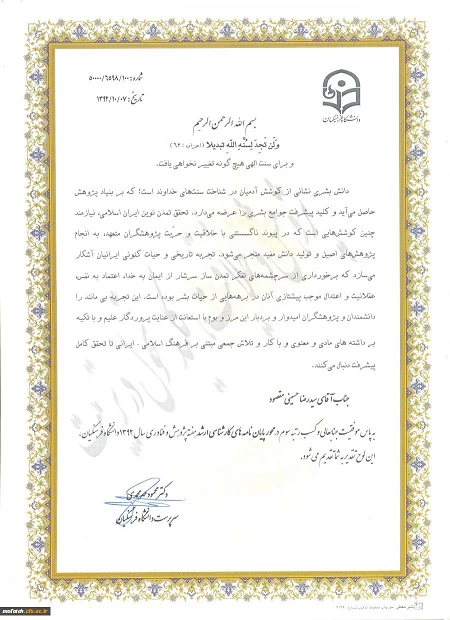 شماره: ۵۰۰۰۰/۶۵۹۸/۱۰۰
تاریخ: ۱۳۹۲/۱۰/۰۷
دانشگاه فرهنگیان
بسم الله الرحمن الرحیم
وَلَن تَجِدَ لِسُنَّةِ اللَّهِ تَبدیلا (احزاب: ۶۲)
و برای سنت الهی هیچ گونه تغییر نخواهی یافت.
دانش بشری نشانی از کوشش آدمیان در شناخت سنت‌های خداوند است؛ که بر بنیاد پژوهش
حاصل می‌آید و کلید پیشرفت جوامع بشری را عرضه می‌دارد. تحقق تمدن نوین ایران اسلامی، نیازمند
چنین کوشش‌هایی است که در پیوند ناگسستنی با خلاقیت و حریّت پژوهشگران متعهد، به انجام
پژوهش‌های اصیل و تولید دانش مفید منجر می‌شود. تجربه تاریخی و حیات کنونی ایرانیان آشکار
می‌سازد که برخورداری از سرچشمه‌های تفکر تمدن ساز سرشار از ایمان به خدا، اعتماد به نفس،
عقلانیت و اعتدال موجب پیشتازی آنان در برهه‌هایی از حیات بشر بوده است. این تجربه بی مانند را
دانشمندان و پژوهشگران امیدوار و بردبار این مرز و بوم با استعانت از عنایت پروردگار علیم و با تکیه
بر داشته های مادی و معنوی و با کار و تلاش جمعی مبتنی بر فرهنگ اسلامی ـ ایرانی تا تحقق کامل
پیشرفت دنبال می‌کنند.
جناب آقای سیدرضا حسینی مقصود
به پاس موفقیت جنابعالی و کسب رتبه سوم در محور پایان نامه های کارشناسی ارشد هفته پژوهش و فناوری سال ۱۳۹۲ دانشگاه فرهنگیان،
این لوح تقدیر به شما تقدیم می شود.
دکتر محمود مهرمحمدی
سرپرست دانشگاه فرهنگیان
mofateh.cfu.ac.ir